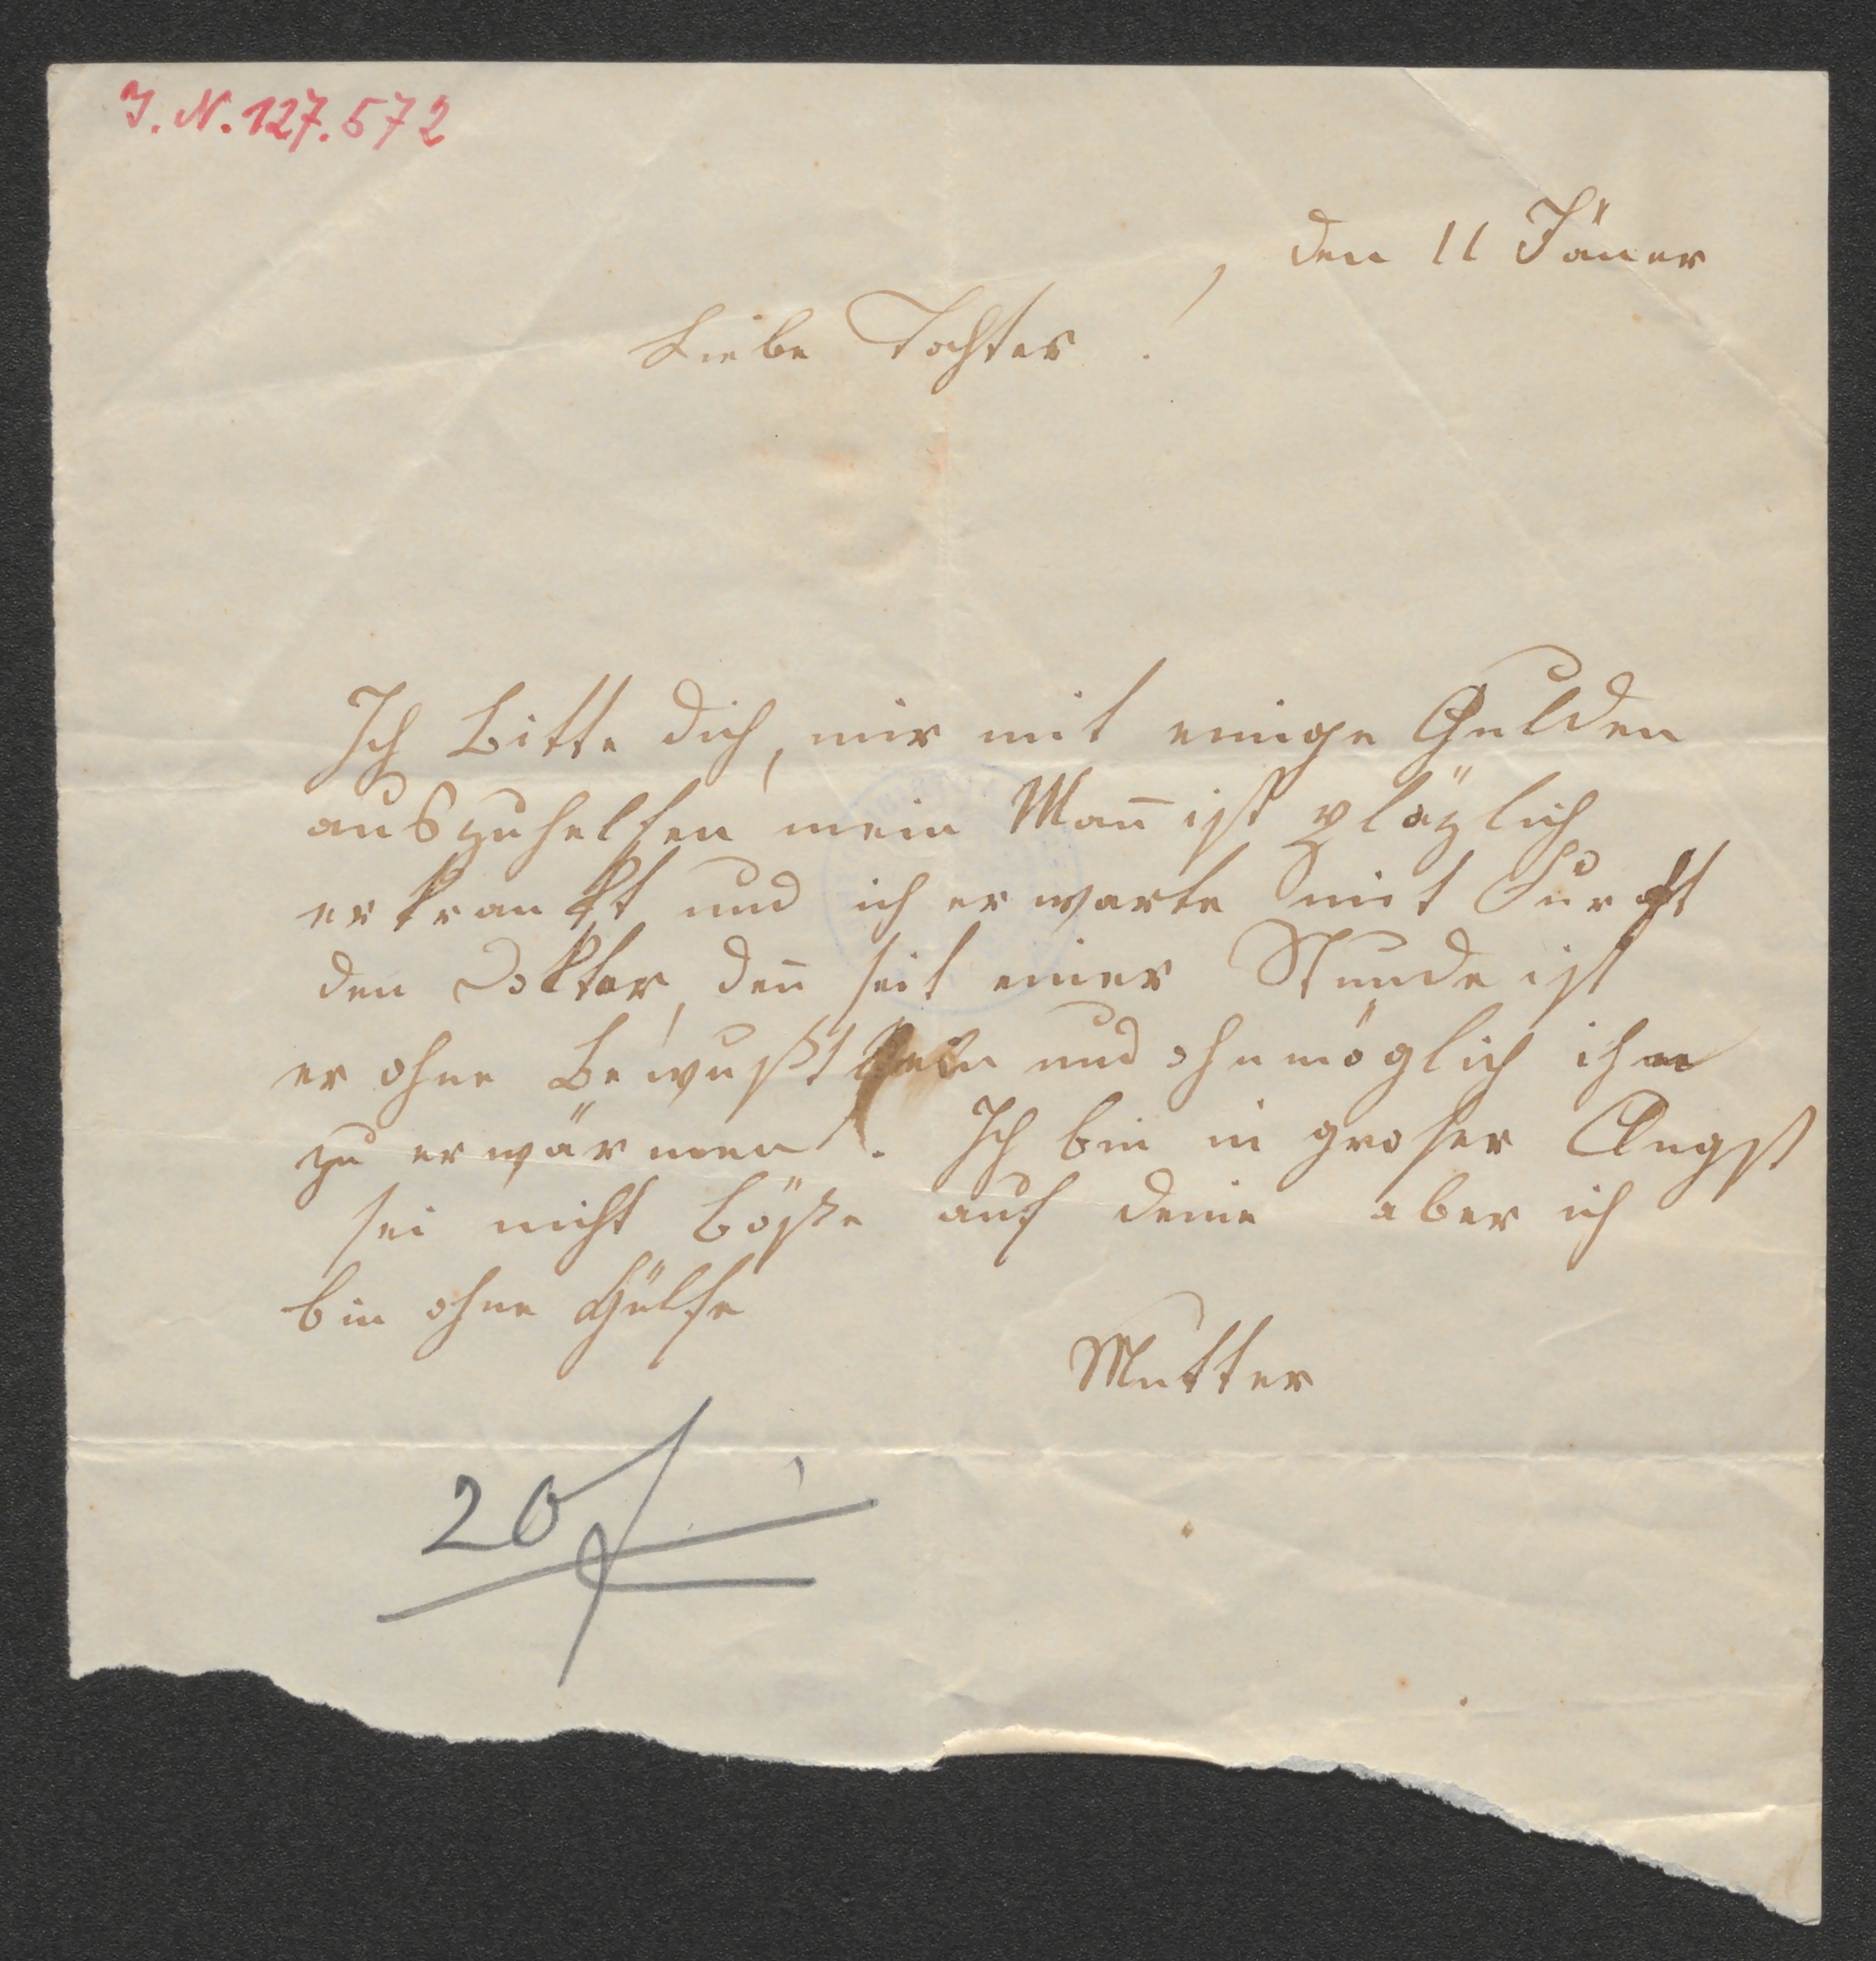 I. N. 127.572
den 11 Jäner
Liebe Tochter!
Ich Bitte dich, mir mit einige Gulden
auszuhelfen mein Mañ ist plözlich
erkrankt und ich erwarte mit Furcht
den Doktor, deñ seit einer Stunde ist
er ohne Bewußtsein und ohnmöglich ihn
zu erwärmen. Ich bin in groser Angst
sei nicht böße auf deine aber ich
bin ohne Hülfe
Mutter
20 f